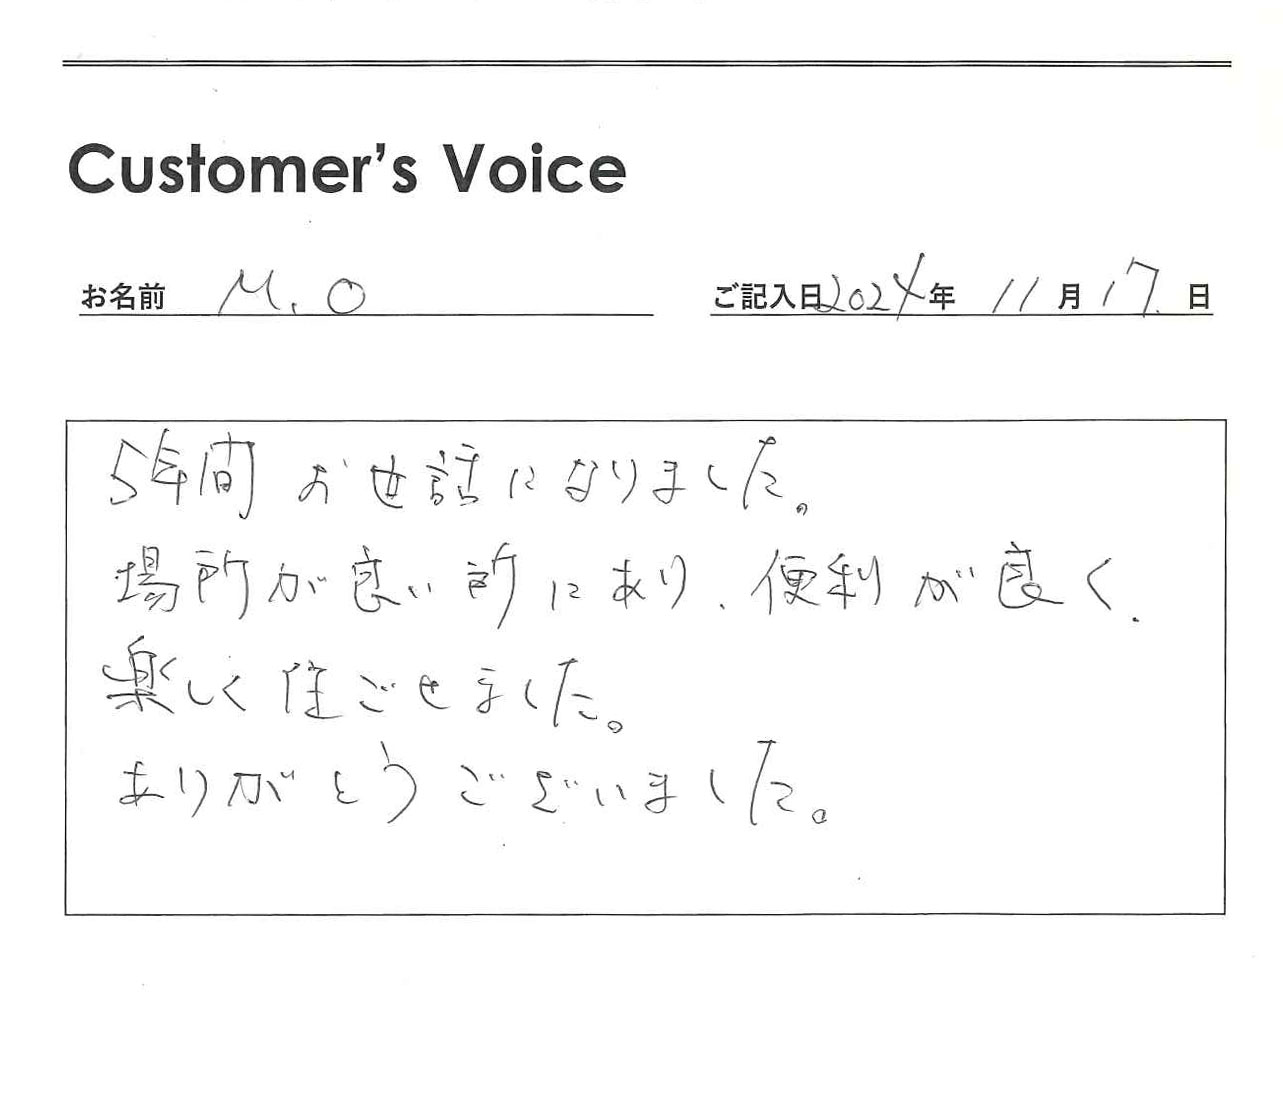 Customer's Voice
お名前 M.O ご記入日2024年 11月17日
5年間お世話になりました。
場所が良い所にあり、便利が良く、
楽しく住ごせました。
ありがとうございました。